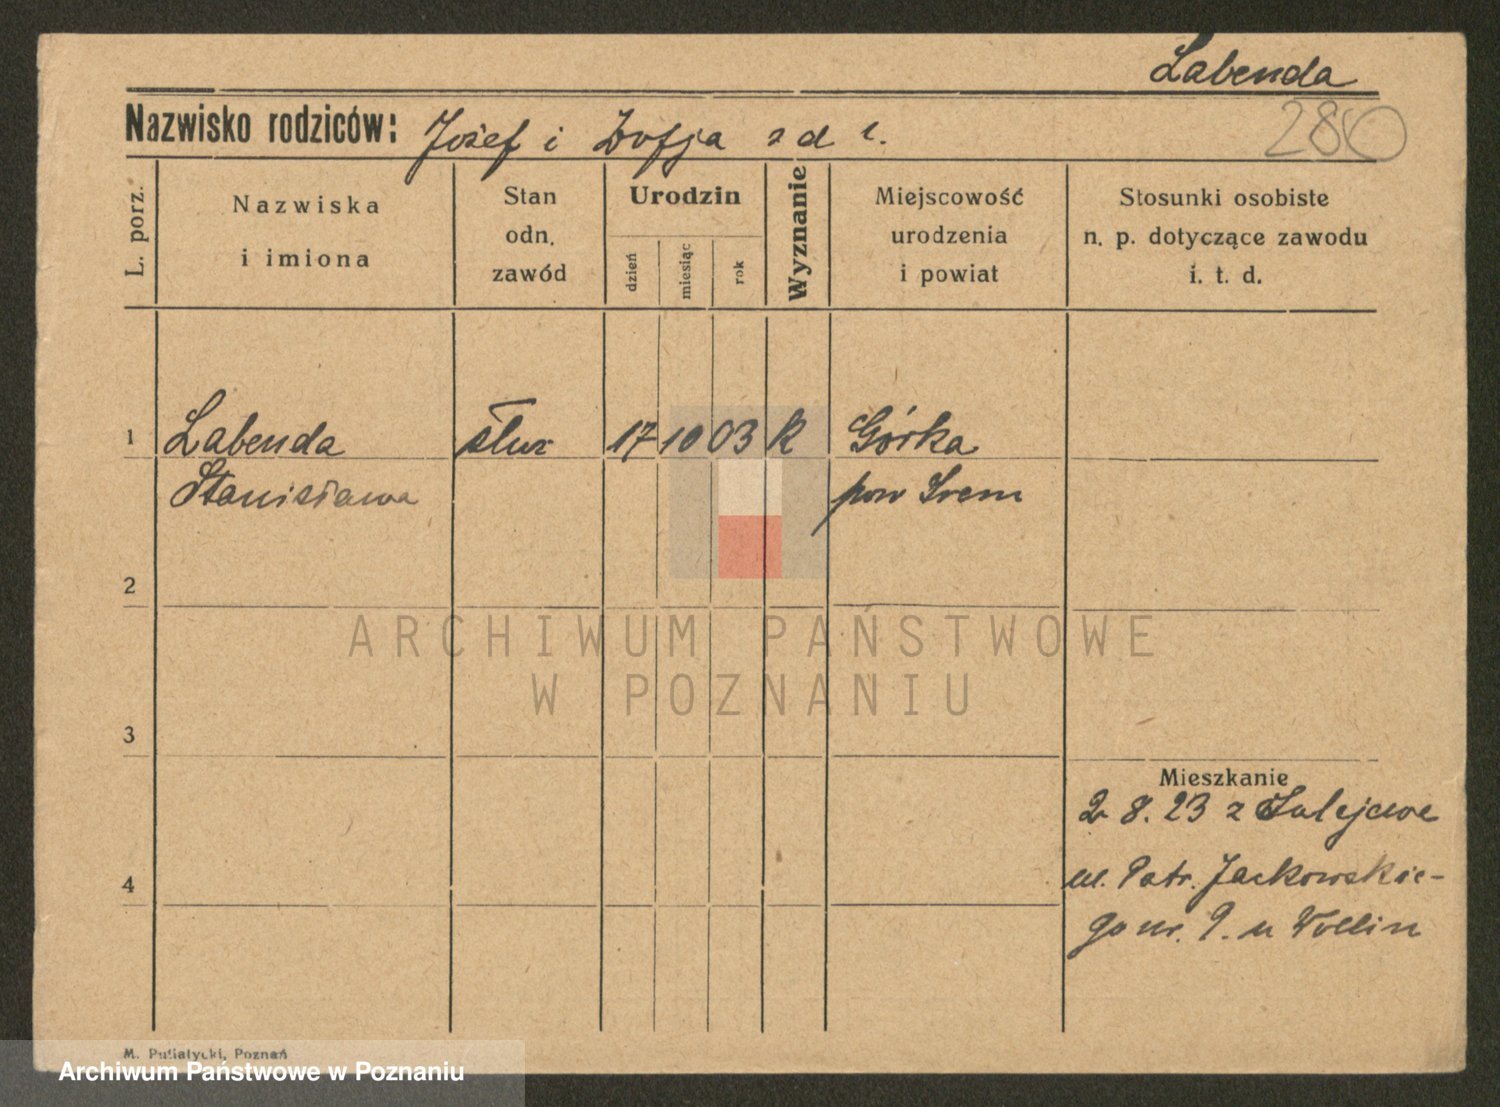 Labenda
280
Nazwisko rodziców: Józef i Zofja z d
L. porz.
Nazwiska
i imiona
Stan
odn.
zawód
Urodzin
dzień
miesiąc
rok
Wyznanie
Miejscowość
urodzenia
i powiat
Stosunki osobiste
n. p. dotyczące zawodu
i. t. d.
1
Labenda
Stanisława
służ
17
10
03
K
Górka
pow Śrem
2
3
4
Mieszkanie
2 8. 23 z Sulejewa
ul. Patr. Jackowskie-
go nr. 9. u Wollin
M. Putiatycki, Poznań
ARCHIWUM PAŃSTWOWE
W POZNANIU
Archiwum Państwowe w Poznaniu